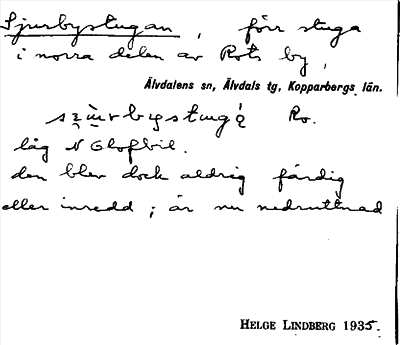 Sjurbystugan, förr stuga
i norra delen av Rots by,
Älvdalens sn, Älvdals tg, Kopparbergs län.
Ro.
låg N
den blev dock aldrig färdig
eller inredd; är nu nedruttnad
HELGE LINDBERG 1935.